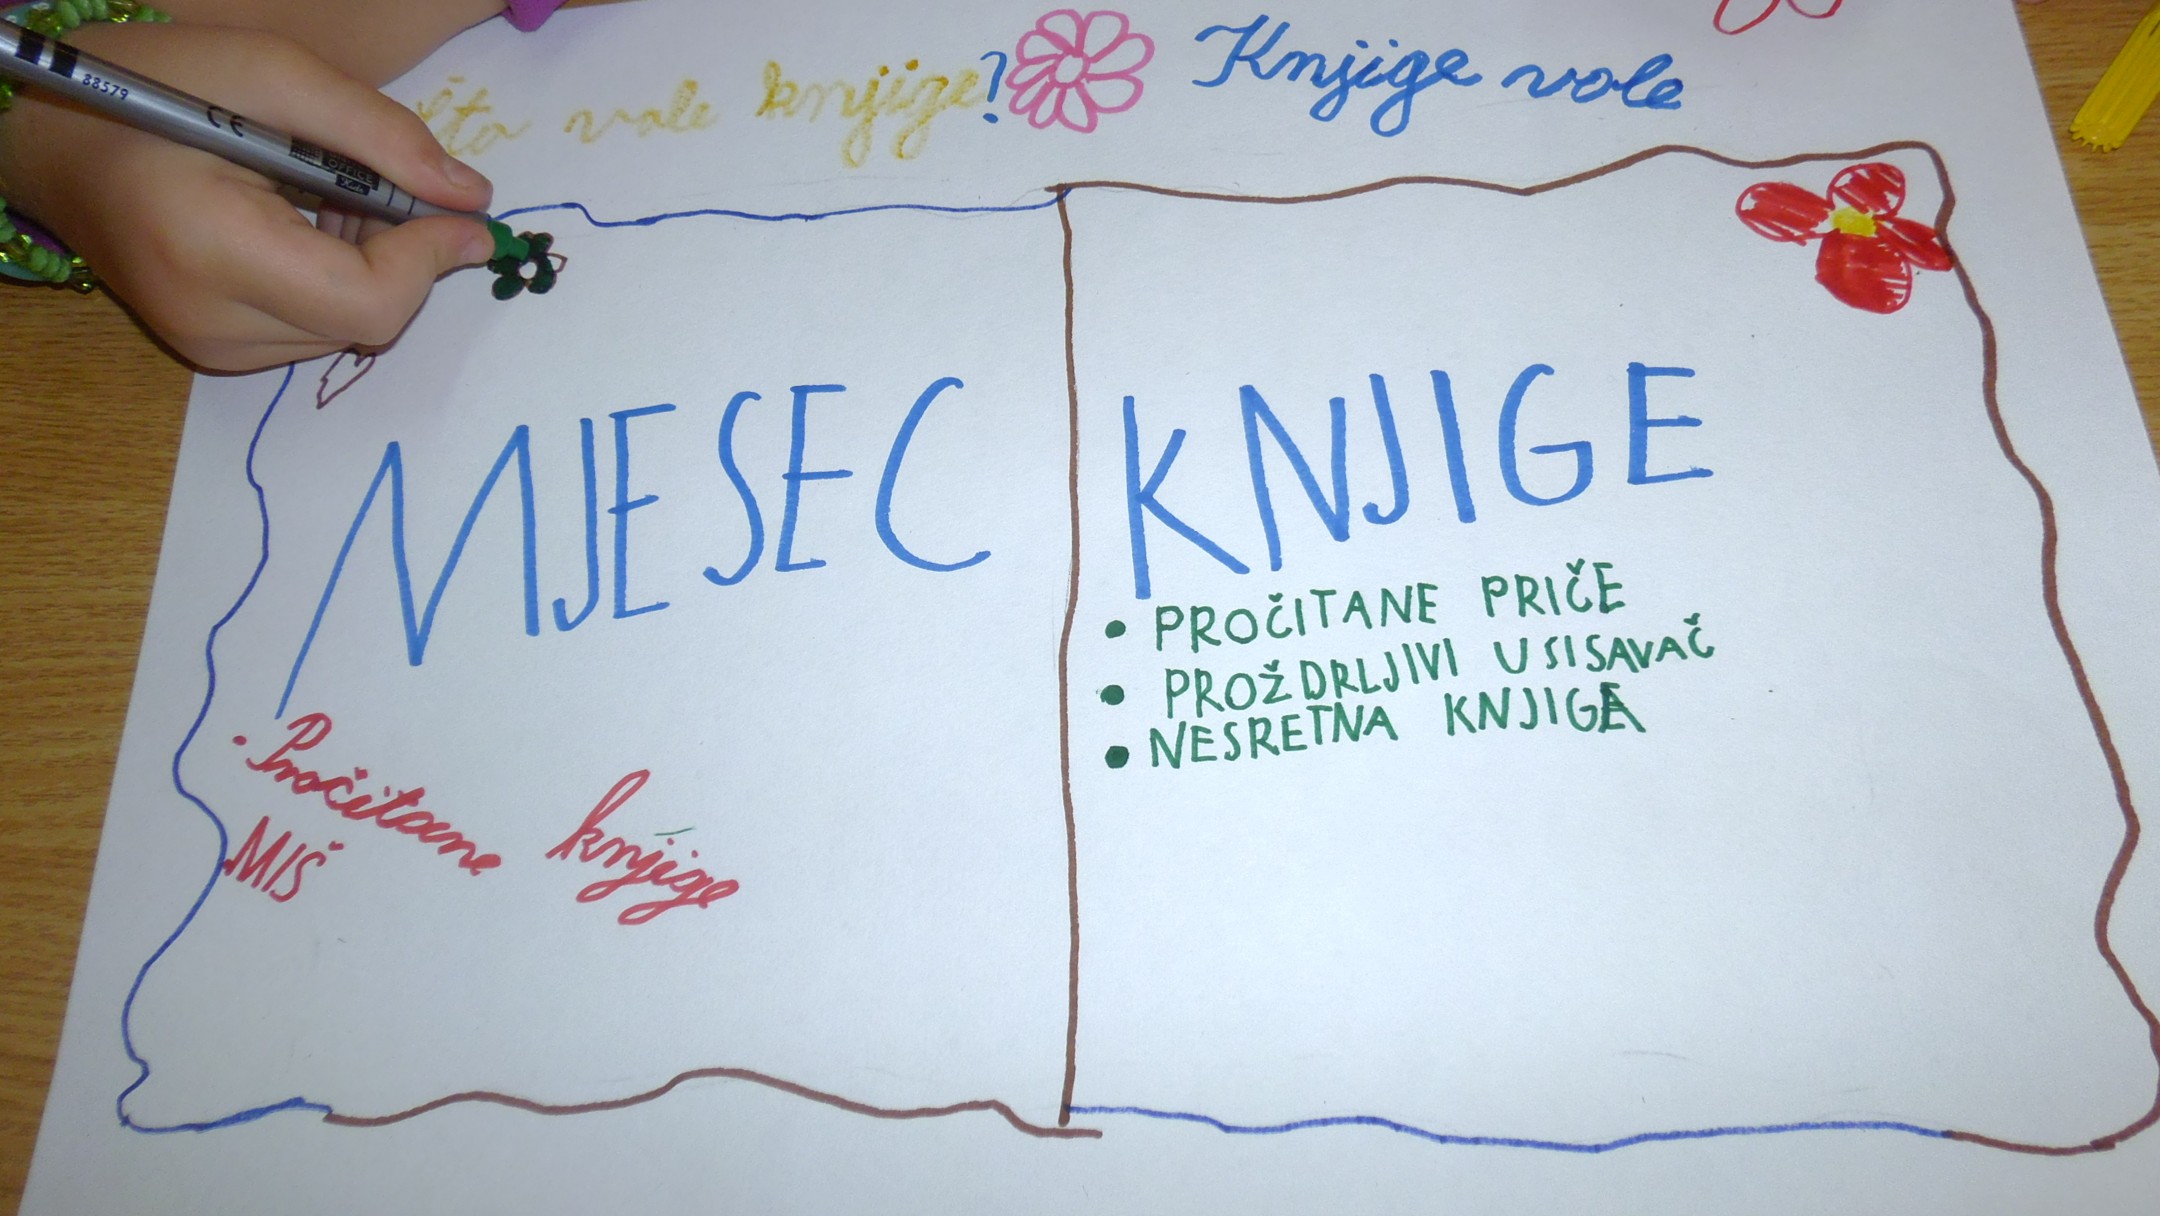 Šta vole knjige?
Knjige vole
MJESEC KNJIGE
• Pročitane knjige
MIŠ
• PROČITANE PRIČE
• PROŽDRLJIVI USISAVAČ
• NESRETNA KNJIGA
88579
CE
OFFICE
Kids